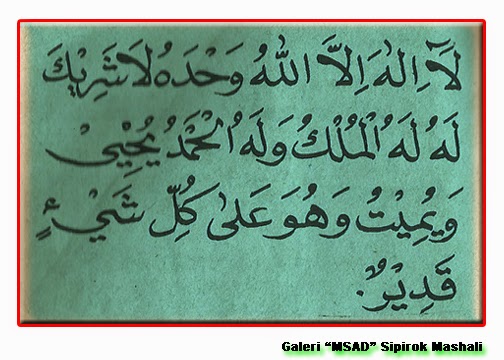 لَآ اِلٰهَ اِلَّا اللهُ وَحْدَهُ لَا شَرِيْكَ
لَهُ لَهُ الْمُلْكُ وَلَهُ الْحَمْدُ يُحْيِيْ
وَيُمِيْتُ وَهُوَ عَلٰى كُلِّ شَيْءٍ
قَدِيْرٌ.
Galeri “MSAD” Sipirok Mashali